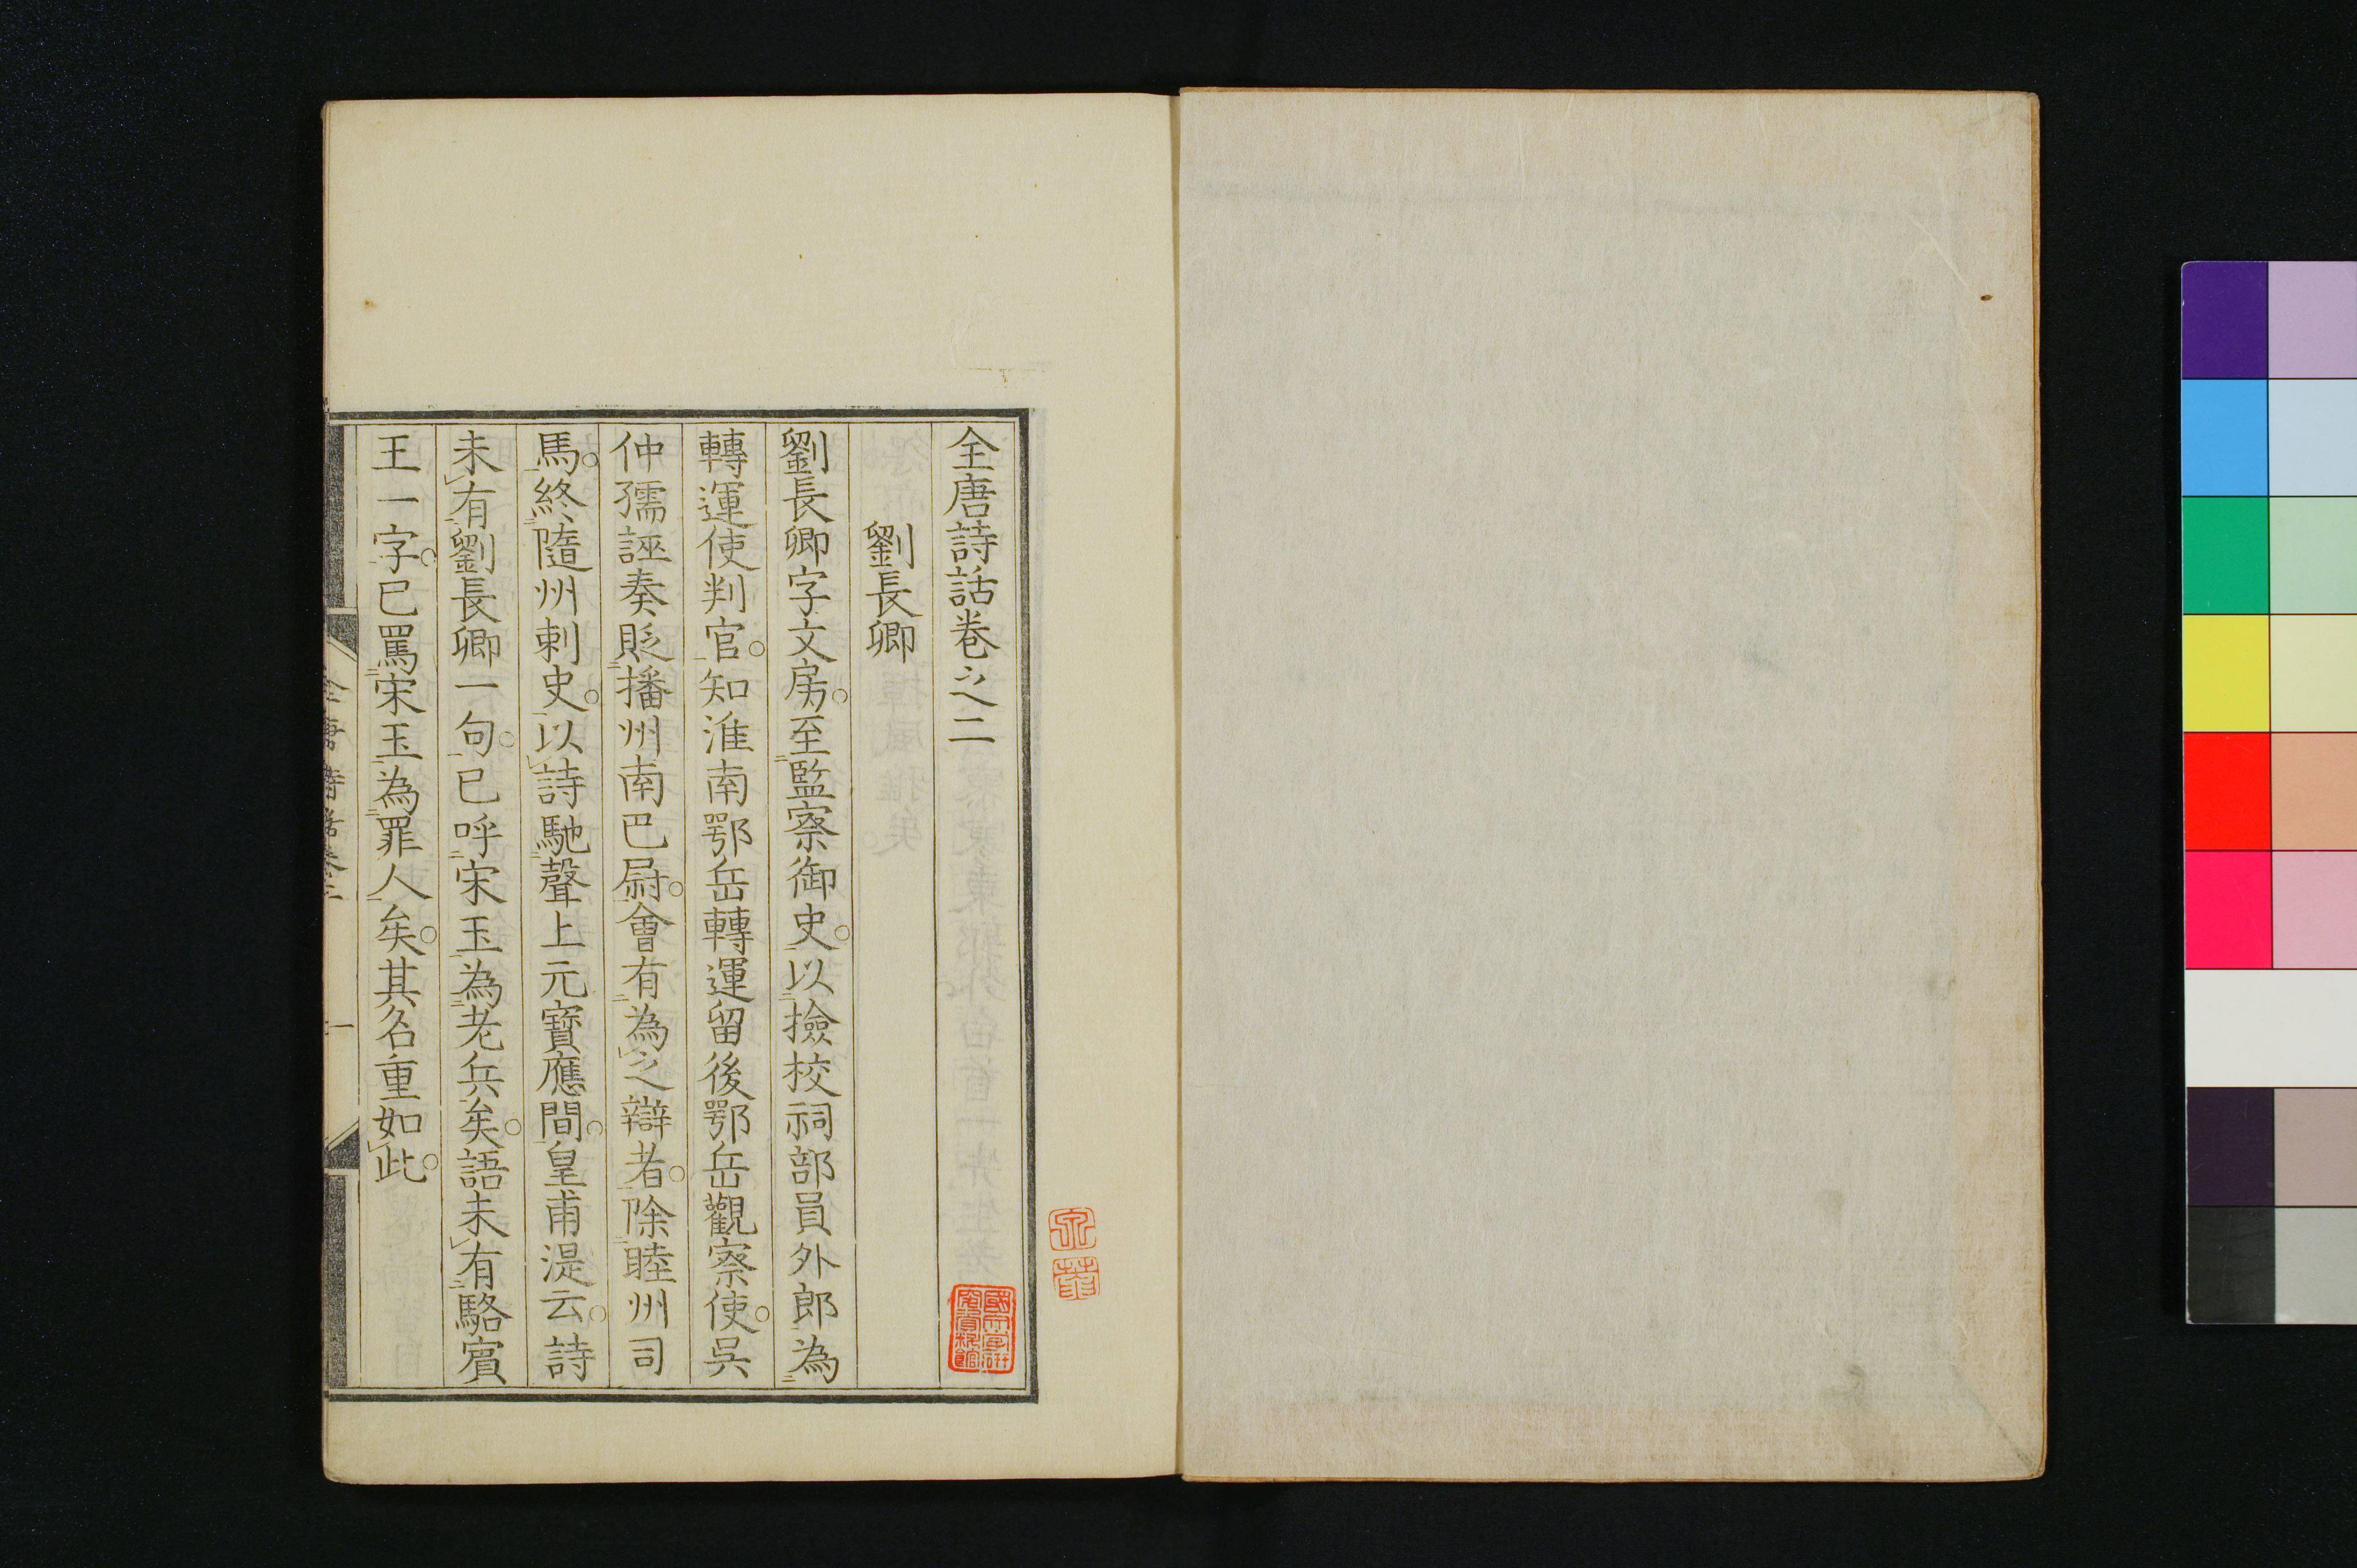 全唐詩話卷之二
劉長卿
劉長卿字文房。至監察御史。以撿校祠部員外郎為
轉運使判官。知淮南鄂岳轉運留後鄂岳觀察使。吳
仲孺誣奏貶播州南巴尉。會有為之辯者。除睦州司
馬。終隨州刺史。以詩馳聲上元寶應間。皇甫湜云。詩
未有劉長卿一句。已呼宋玉為老兵矣。語未有駱賓
王一字。已罵宋玉為罪人矣。其名重如此。
全唐詩話卷二 一
國文學研
究資料館